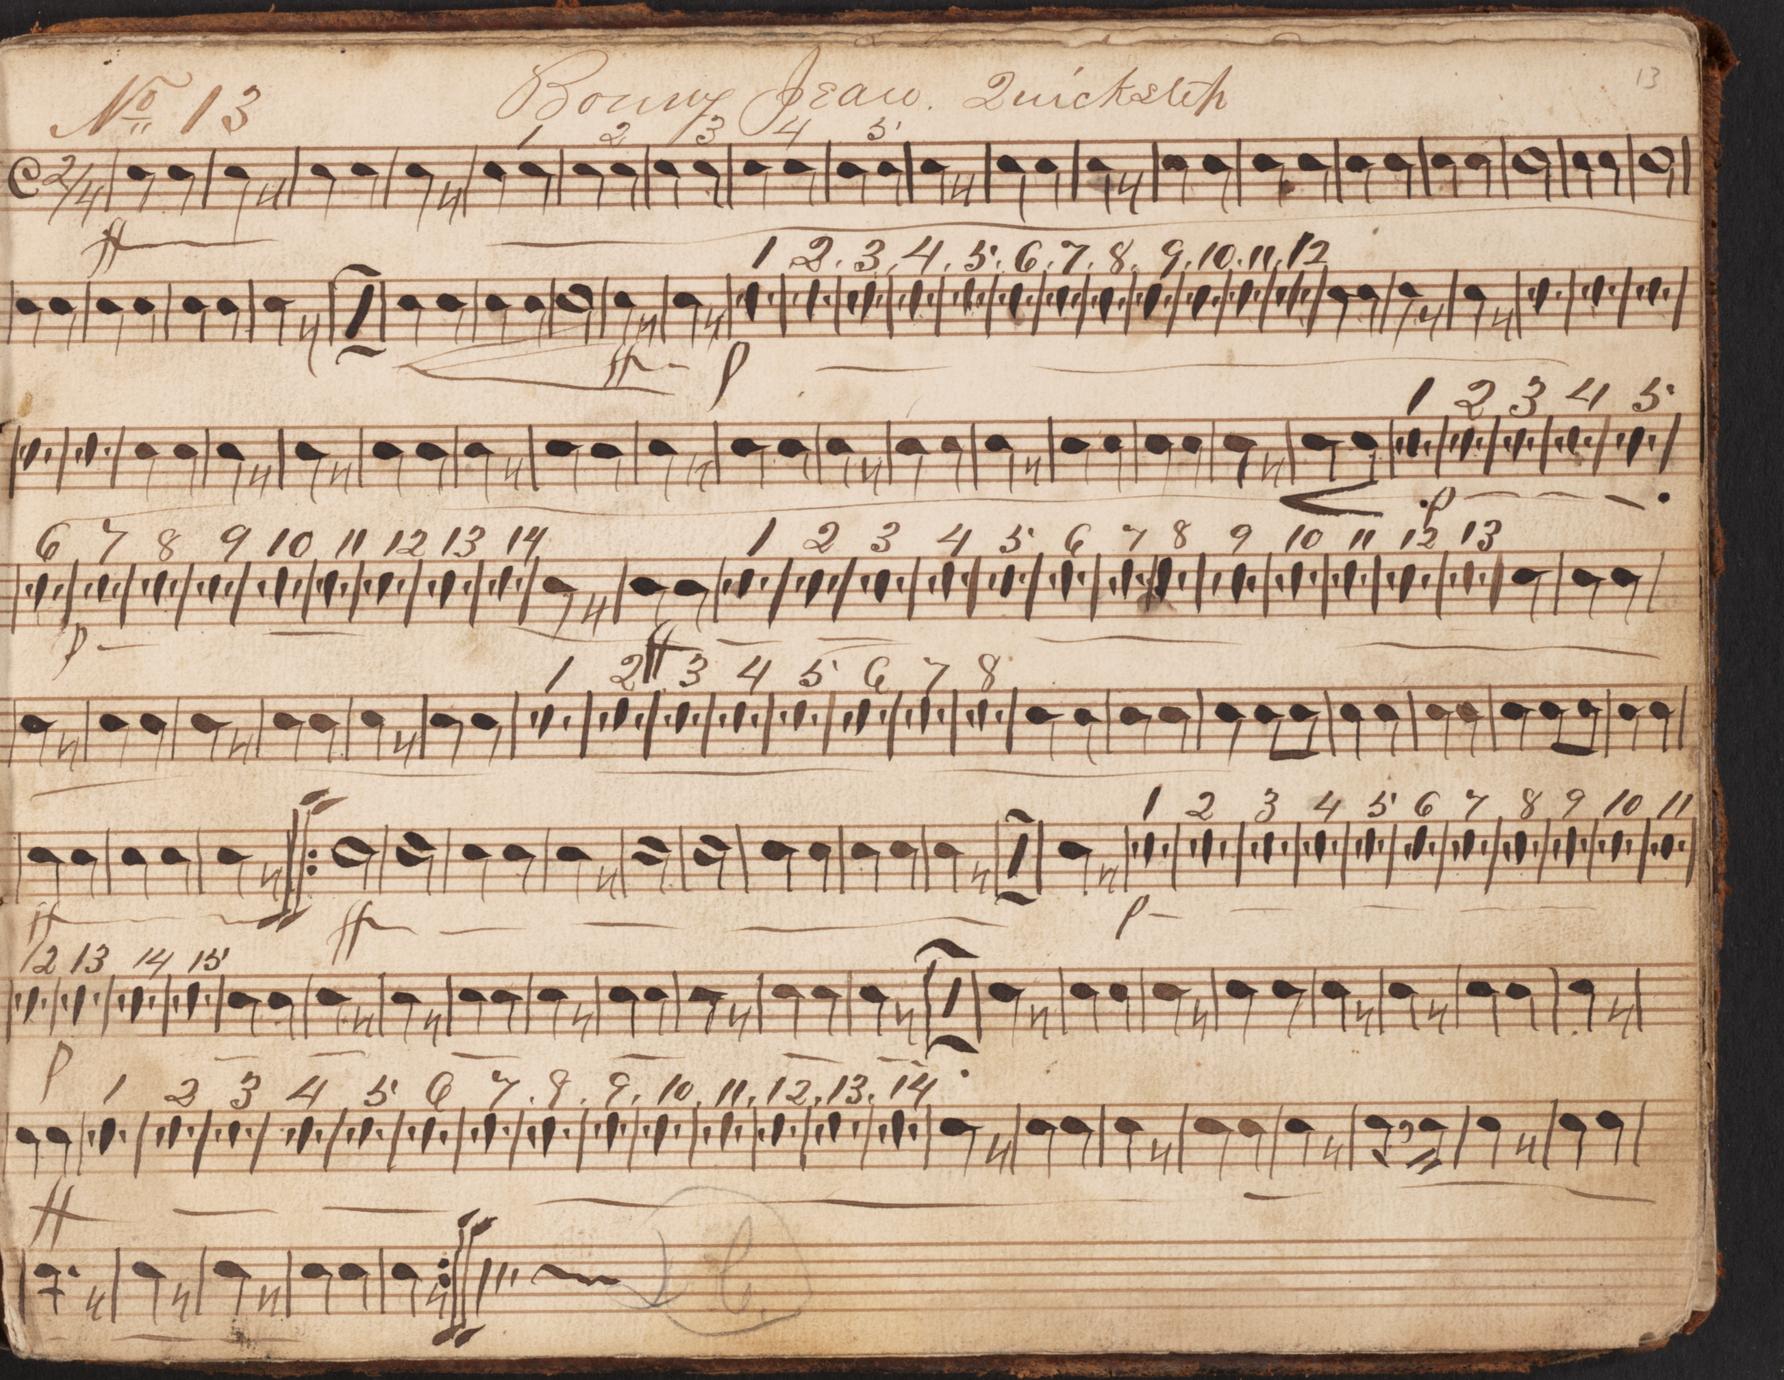 No 13 Bonny Jean. Quickstep 13
1 2 3 4 5
2/4
ff
1 2. 3. 4. 5. 6. 7. 8. 9. 10. 11. 12
ff p
1 2 3 4 5
p
6 7 8 9 10 11 12 13 14 1 2 3 4 5 6 7 8 9 10 11 12 13
p ff
1 2 3 4 5 6 7 8
1 2 3 4 5 6 7 8 9 10 11
ff ff p
12 13 14 15
p
1 2 3 4 5 6 7. 8. 9. 10. 11. 12. 13. 14
ff